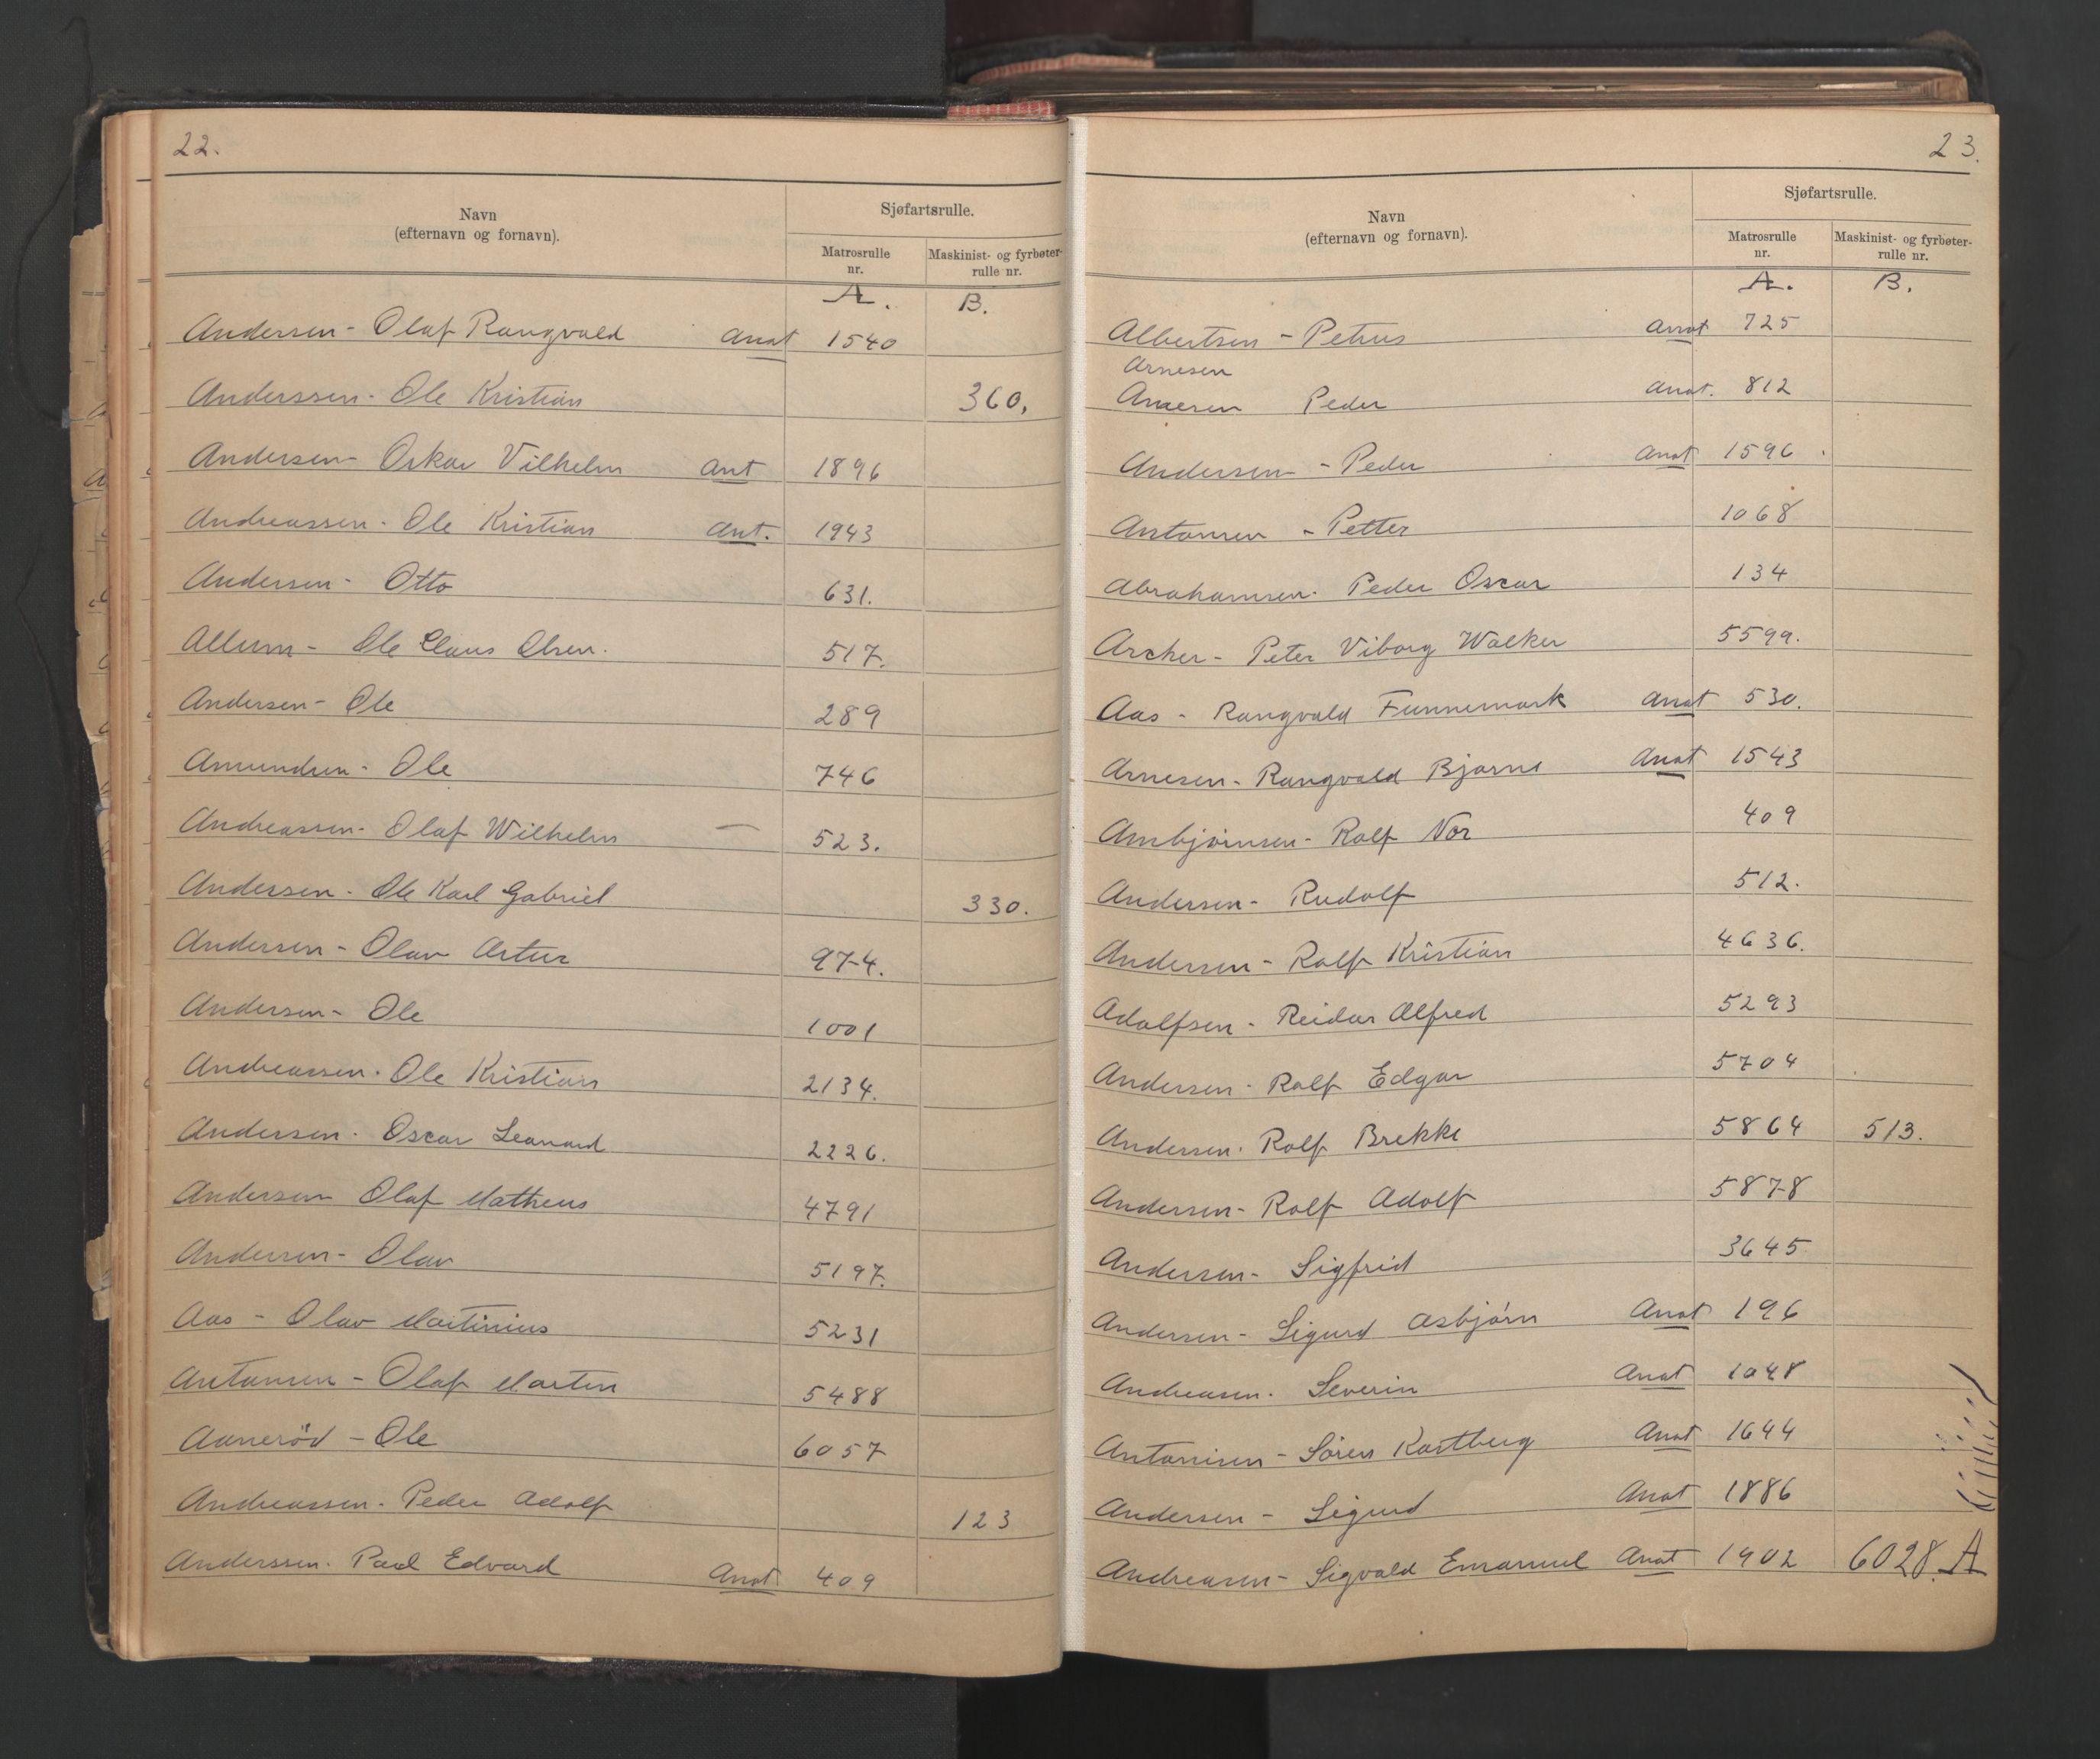 22.
Navn
(efternavn og fornavn).
Sjøfartsrulle.
Matrosrulle nr.
Maskinist- og fyrbøter-rulle nr.
A. B.
Andersen - Olaf Rangvald Anot 1540
Anderssen - Ole Kristian 360.
Andersen - Oskar Vilhelm Ant 1896
Andreassen - Ole Kristian Ant. 1943
Andersen - Otto 631.
Allum - Ole Claus Olsen. 517.
Andersen - Ole 289
Amundsen - Ole 746
Andreassen - Olaf Wilhelm — 523.
Andersen - Ole Karl Gabriel 330.
Andersen - Olav Artur 974.
Andersen - Ole 1001
Andreassen - Ole Kristian 2134.
Andersen - Oscar Leonard 2226.
Andersen Olaf Matheus 4791
Andersen - Olav 5197.
Aas - Olav Martinius 5231
Antonsen - Olaf Marten 5488
Aanerød - Ole 6057
Andreassen - Peder Adolf 123
Anderssen - Paul Edvard Anot 409
23.
Navn
(efternavn og fornavn).
Sjøfartsrulle.
Matrosrulle nr.
Maskinist- og fyrbøter-rulle nr.
A. B.
Albertsen - Petrus Anot 725
Arnesen
Arnesen Peder Anot. 812
Andersen - Peder Anot 1596
Antonsen - Petter 1068
Abrahamsen - Peder Oscar 134
Archer - Peter Viborg Walker 5599.
Aas - Rangvald Funnemark Anot 530.
Arnesen - Rangvald Bjarne Anot 1543
Arnbjørnsen - Rolf Nor 409
Andersen - Rudolf 512.
Andersen - Rolf Kristian 4636.
Adolfsen - Reidar Alfred 5293
Andersen - Rolf Edgar 5704
Andersen - Rolf Brekke 5864 513.
Andersen - Rolf Adolf 5878
Andersen - Sigfrid 3645
Andersen - Sigurd Asbjørn Anot 196
Andreasen - Severin Anot 1048
Antonisen - Søren Kastberg Anot 1644
Andersen - Sigurd Anot 1886
Andreasen - Sigvald Emanuel Anot 1902 6028. A